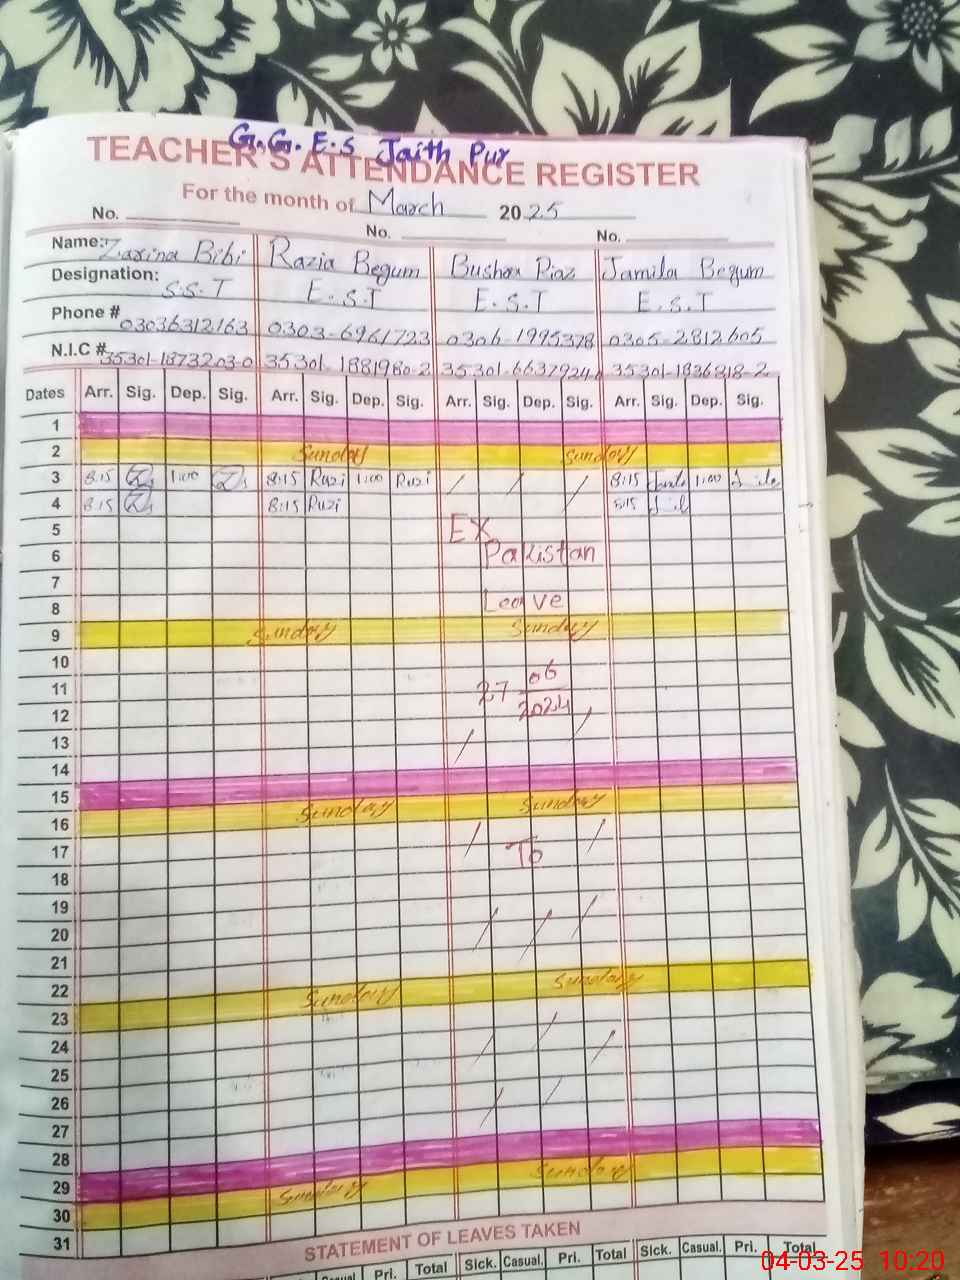 G.G.E.S Jaith Pur
TEACHER'S ATTENDANCE REGISTER
For the month of March 2025
No. No. No.
Name: Zarina Bibi Razia Begum Bushra Riaz Jamila Begum
Designation: S.S.T E.S.T E.S.T E.S.T
Phone # 03036312163 0303-6961723 0306-1995378 0305-2812605
N.I.C # 35301-1873203-0 35301-1881980-2 35301-6637924 35301-1836818-2
Dates Arr. Sig. Dep. Sig. Arr. Sig. Dep. Sig. Arr. Sig. Dep. Sig. Arr. Sig. Dep. Sig.
1
2 Sunday Sunday
3 8:15 1:00 8:15 Razi 1:00 Razi / / / 8:15 1:00
4 8:15 8:15 Razi 8:15
5 EX
6 Pakistan
7
8 Leave
9 Sunday Sunday
10
11 27-06
12 2024
13 / /
14
15
16 Sunday Sunday
17 / To /
18
19
20 / / /
21
22 Sunday Sunday
23
24 / / /
25
26 / /
27
28
29 Sunday Sunday
30
31
STATEMENT OF LEAVES TAKEN
Casual Pri. Total Sick. Casual. Pri. Total Sick. Casual. Pri. Total
04-03-25 10:20